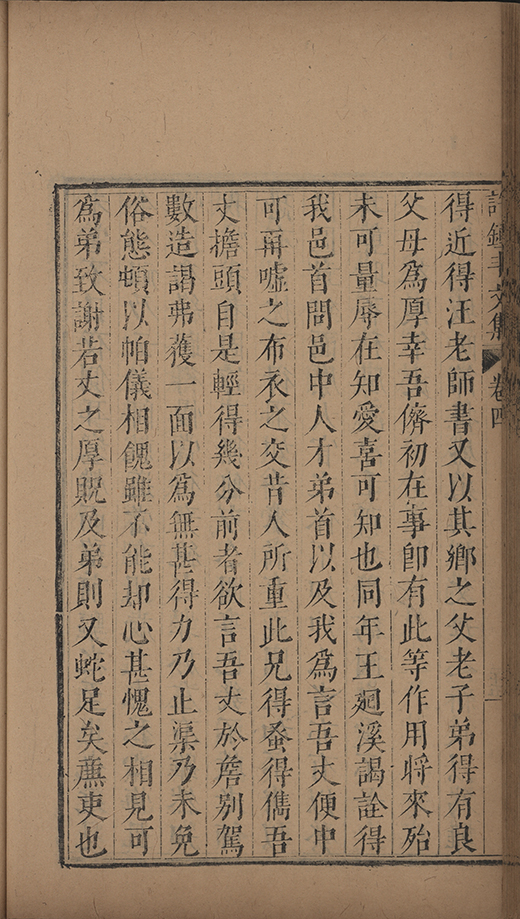 許鍾斗文集 卷四
得近得汪老師書又以其鄉之父老子弟得有良
父母爲厚幸吾儕初在事卽有此等作用將來殆
未可量辱在知愛喜可知也同年王廻溪謁詮得
我邑首問邑中人才弟首以及我爲言吾丈便中
可再噓之布衣之交昔人所重此兄得蚤得儁吾
丈檐頭自是輕得幾分前者欲言吾丈於詹別駕
數造謁弗獲一面以爲無甚得力乃止渠乃未免
俗態頓以帕儀相餽雖不能却心甚愧之相見可
爲弟致謝若丈之厚貺及弟則又蛇足矣薦吏也